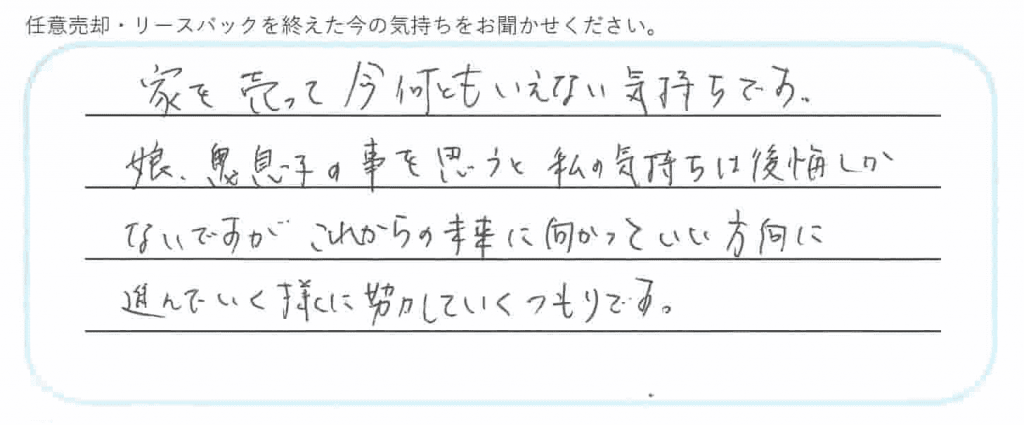 任意売却・リースバックを終えた今の気持ちをお聞かせください。
家を売って今何ともいえない気持ちです。
娘、息子の事を思うと私の気持ちは後悔しか
ないですが これからの未来に向かっていい方向に
進んでいく様に努力していくつもりです。